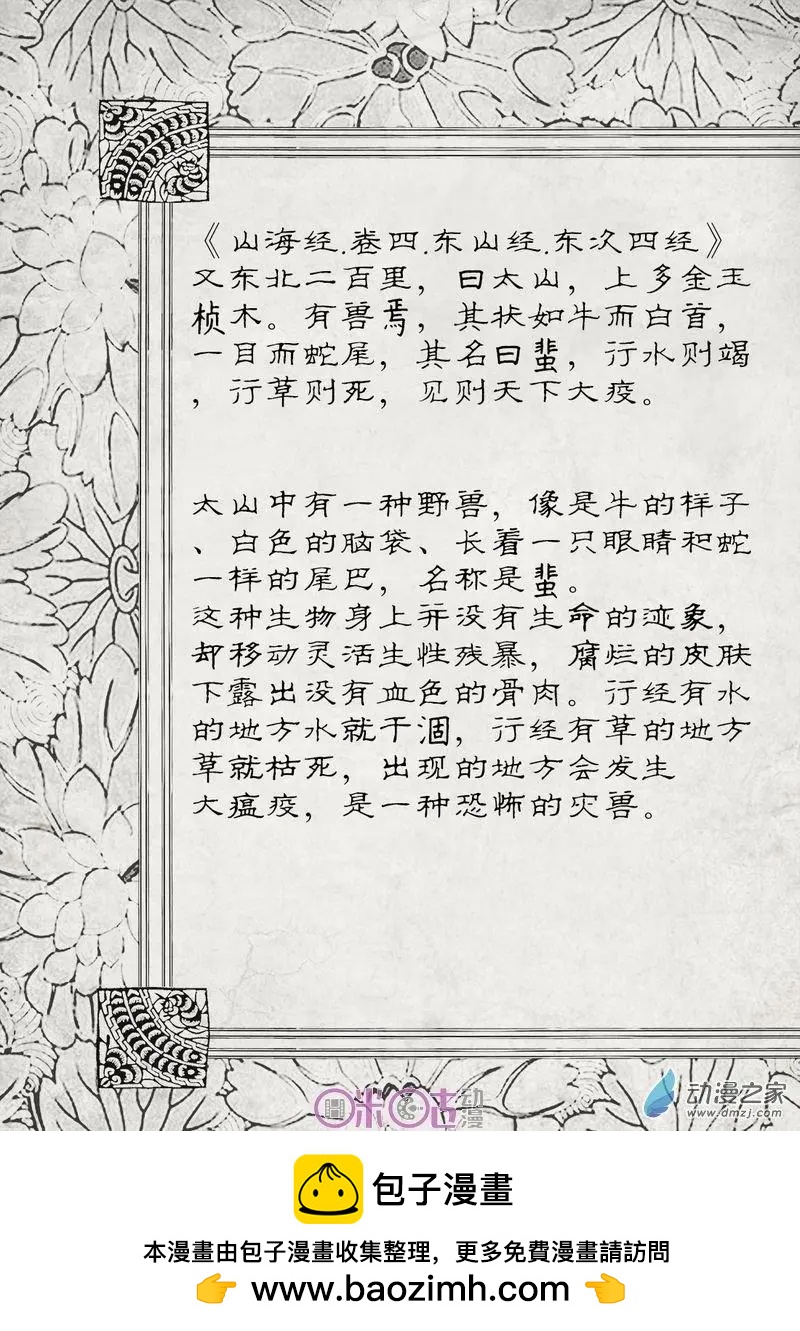 《山海经.卷四.东山经.东次四经》
又东北二百里，曰太山，上多金玉
桢木。有兽焉，其状如牛而白首，
一目而蛇尾，其名曰蜚，行水则竭
，行草则死，见则天下大疫。
太山中有一种野兽，像是牛的样子
、白色的脑袋、长着一只眼睛和蛇
一样的尾巴，名称是蜚。
这种生物身上并没有生命的迹象，
却移动灵活生性残暴，腐烂的皮肤
下露出没有血色的骨肉。行经有水
的地方水就干涸，行经有草的地方
草就枯死，出现的地方会发生
大瘟疫，是一种恐怖的灾兽。
咪咕动漫
动漫之家
www.dmzj.com
包子漫畫
本漫畫由包子漫畫收集整理，更多免費漫畫請訪問
👉 www.baozimh.com 👈